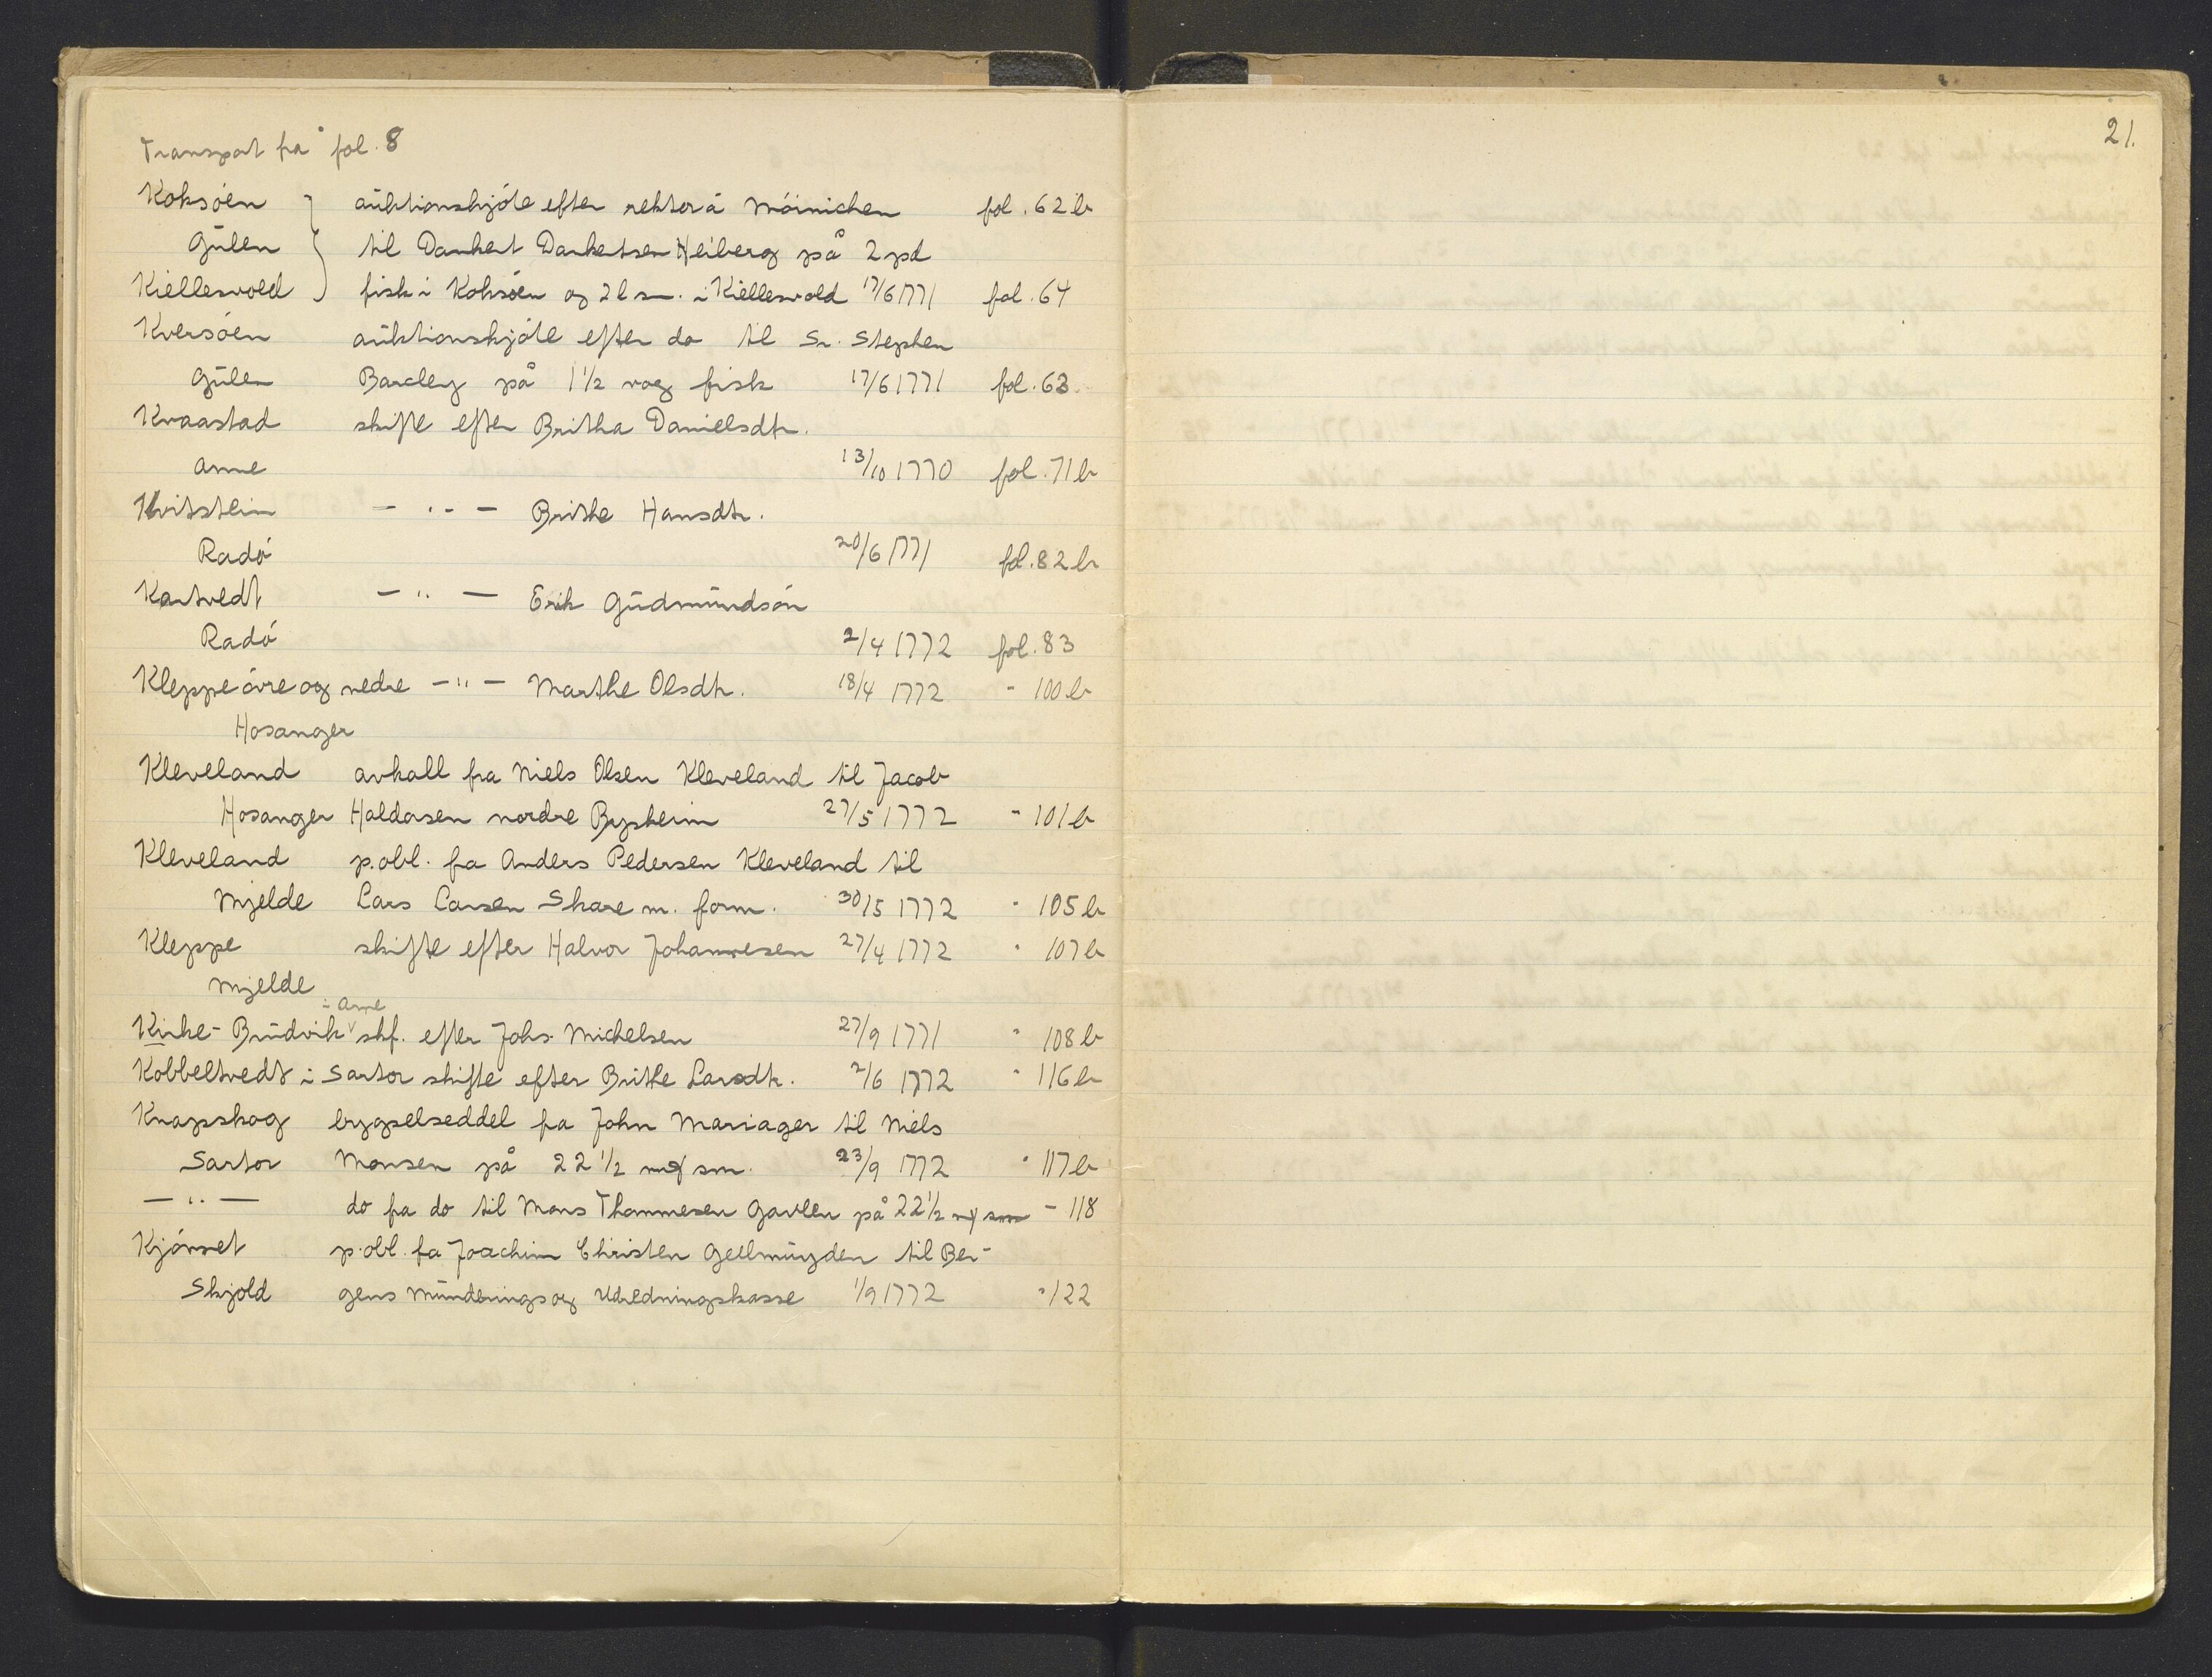 Transport fra fol. 8
21.
Koksöen auktionskjöte efter rektor á Möinichen fol. 62 b
Gülen til Dankert Dankertsen Heiberg på 2 pd
Kiellesvold fisk i Koksöen og 2 l sm. i Kiellesvold 17/6 1771 fol. 64
Kversöen auktionskjöte efter do til Sr. Stephen
Gülen Barcley på 1 1/2 vog fisk 17/6 1771 fol. 63
Kvaastad skifte efter Britha Danielsdtr.
Arne 13/10 1770 fol. 71 b
Kvitstein - " - Brithe Hansdtr.
Radö 20/6 1771 fol. 82 b
Kartvedt - " - Erik Gudmundsön
Radö 2/4 1772 fol. 83
Kleppe övre og nedre - " - Marthe Olsdtr. 18/4 1772 - 100 b
Hosanger
Kleveland avkall fra Niels Olsen Kleveland til Jacob
Hosanger Haldorsen nordre Bysheim 27/5 1772 - 101 b
Kleveland p. obl. fra Anders Pedersen Kleveland til
Mjelde Lars Larsen Skare m. form. 30/5 1772 " 105 b
Kleppe skifte efter Halvor Johannesen 27/4 1772 " 107 b
Mjelde
i Arne
Kirke-Brudvik skf. efter Johs. Michelsen 27/9 1771 " 108 b
Kobbeltvedt i Sartor skifte efter Brithe Larsdtr. 2/6 1772 " 116 b
Knapskog bygselseddel fra John Mariager til Niels
Sartor Monsen på 22 1/2 mrk sm. 23/9 1772 " 117 b
- " - do fra do til Mons Thommesen Gavlen på 22 1/2 mrk sm - 118
Kjörret p. obl. fra Joachim Christen Geelmuyden til Ber-
Skjold gens Munderings og Udredningskasse 1/9 1772 " 122